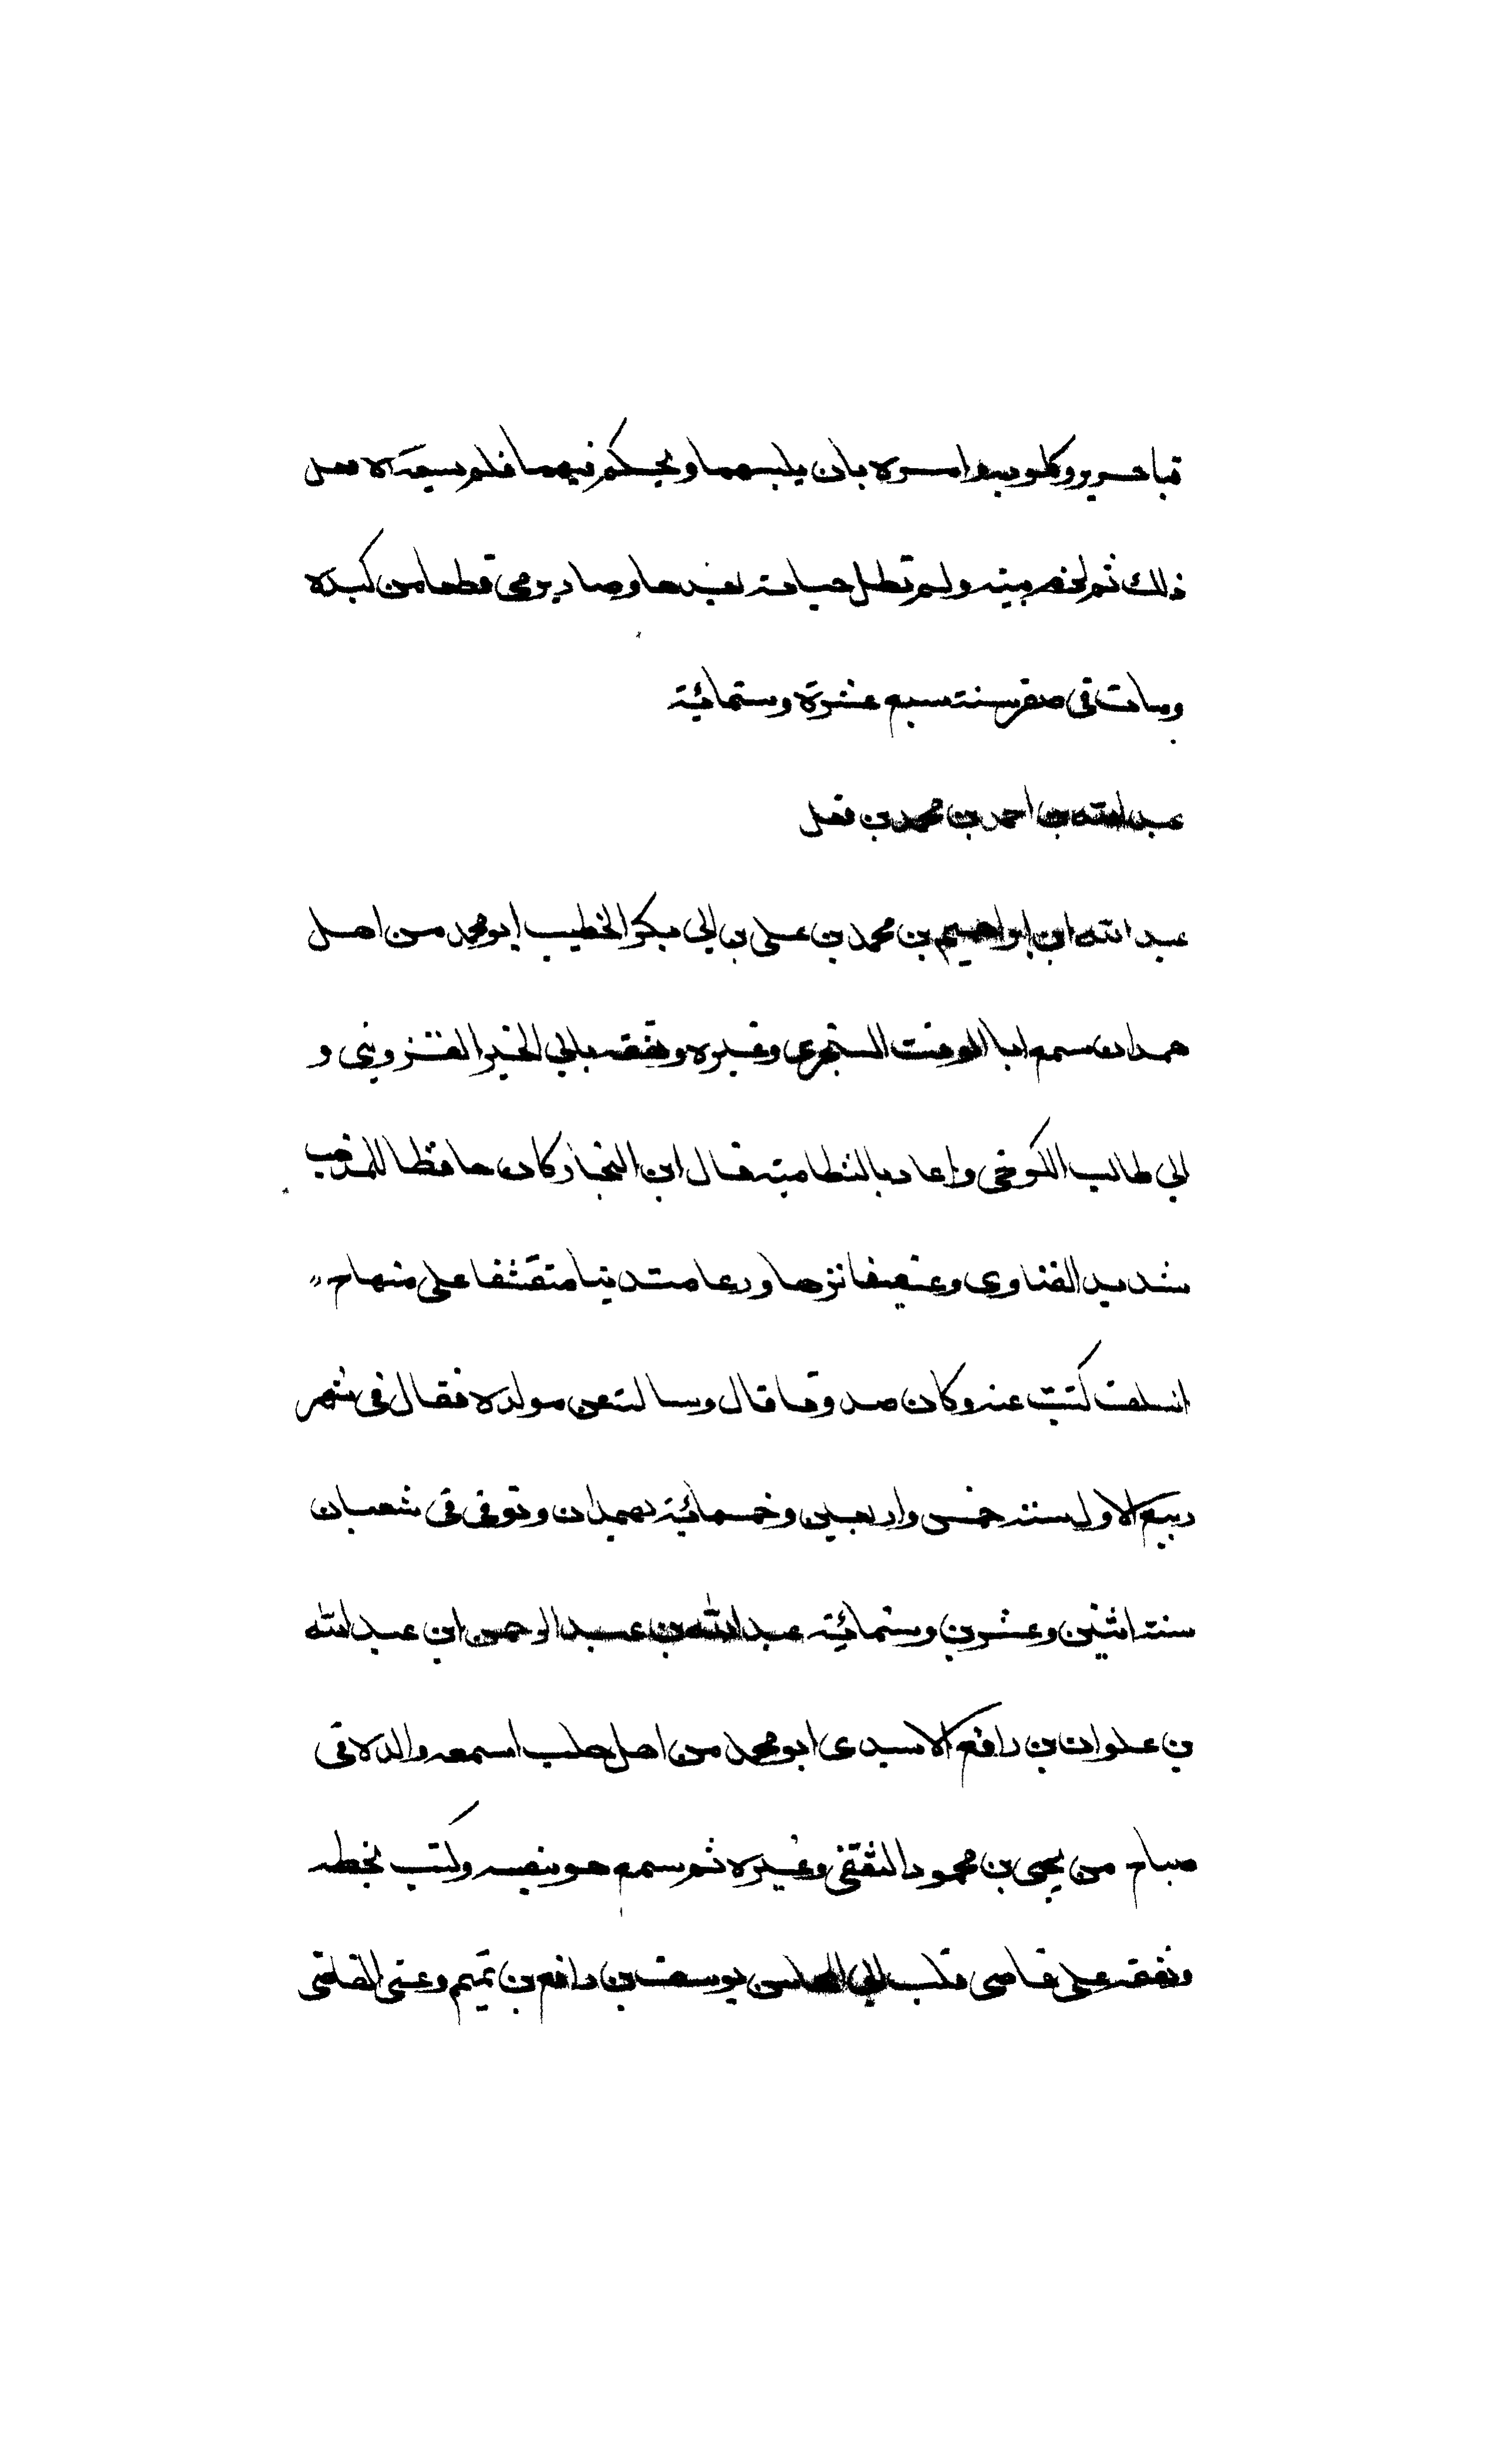 قبا حرير وكلوبه وامره بان يلبسهما ويحكم فيهما فلم يسعه الا فعل
ذلك ثم لحق ببيته ولم تطل حياته بعدها وصار يرمى قطعا من كبده
ومات فى صفر سنة سبع عشرة وستمائة
عبد الله بن احمد بن محمد بن
عبد الله ابن ابراهيم بن محمد بن على بن ابى بكر الخطيب ابو محمد من اهل
همدان سمع ابا الوقت السجزى وغيره وتفقه بابى الخير القزوينى و
ابى طالب الكرخى واعاد بالنظامية قال ابن النجار كان حافظا للمذهب
شديد الفتاوى وعفيفا نزها ورعا متدينا متقشفا على منهاج
السلف كتبت عنه وكان صدوقا قال وسالته عن مولده فقال فى شهر
ربيع الاول سنة خمس واربعين وخمسمائة بهمدان وتوفى فى شعبان
سنة اثنين وعشرين وستمائة عبد الله بن عبد الرحمن ابن عبد الله
بن علوان بن رافع الاسدى ابو محمد من اهل حلب اسمعه والده فى
صباح من يحيى بن محمود الثقفى وغيره ثم سمع هو بنفسه وكتب بخطه
وتفقه على قاضى ابى المحاسن يوسف بن رافع بن تميم وعنى القاضى